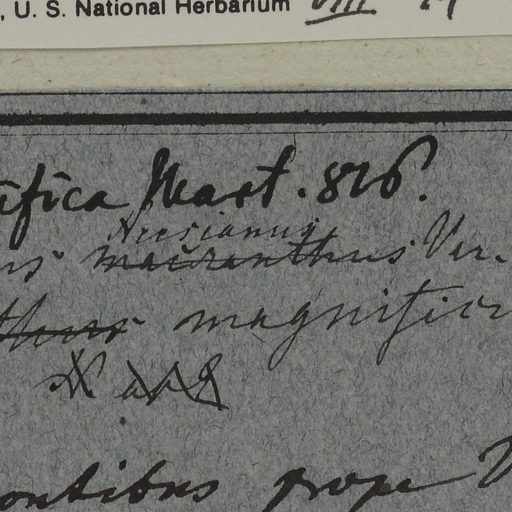 , U. S. National Herbarium VIII
ifica Mart. 816.
Neesianus
us macranthus Ver.
thus magnific
montibus prope V